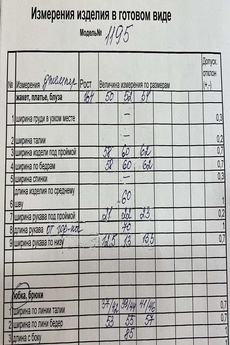 Измерения изделия в готовом виде
Модель№ 1195
№ Измерения джемпер Рост Величина измерения по размерам Допуск. отклон (+ -)
жакет, платье, блуза 164 50 52 54
1 ширина груди в узком месте – 0,3
2 ширина талии – 0,2
3 ширина издели под проймой 58 60 62 0,7
4 ширина по бедрам 58 60 62 0,7
5 ширина спинки – 0,3
6 длина изделия по среднему шву 60 1
7 ширина рукава под проймой 21 22 23 0,2
8 длина рукава от 70 1
9 ширина рукава по низу 12,5 13 13,5 0,7
юбка, брюки
1 ширина по линии талии 37/42 39/44 41/46 0,7
2 ширина по лини бедер 53 55 57 0,7
3 длина с боку 85 1